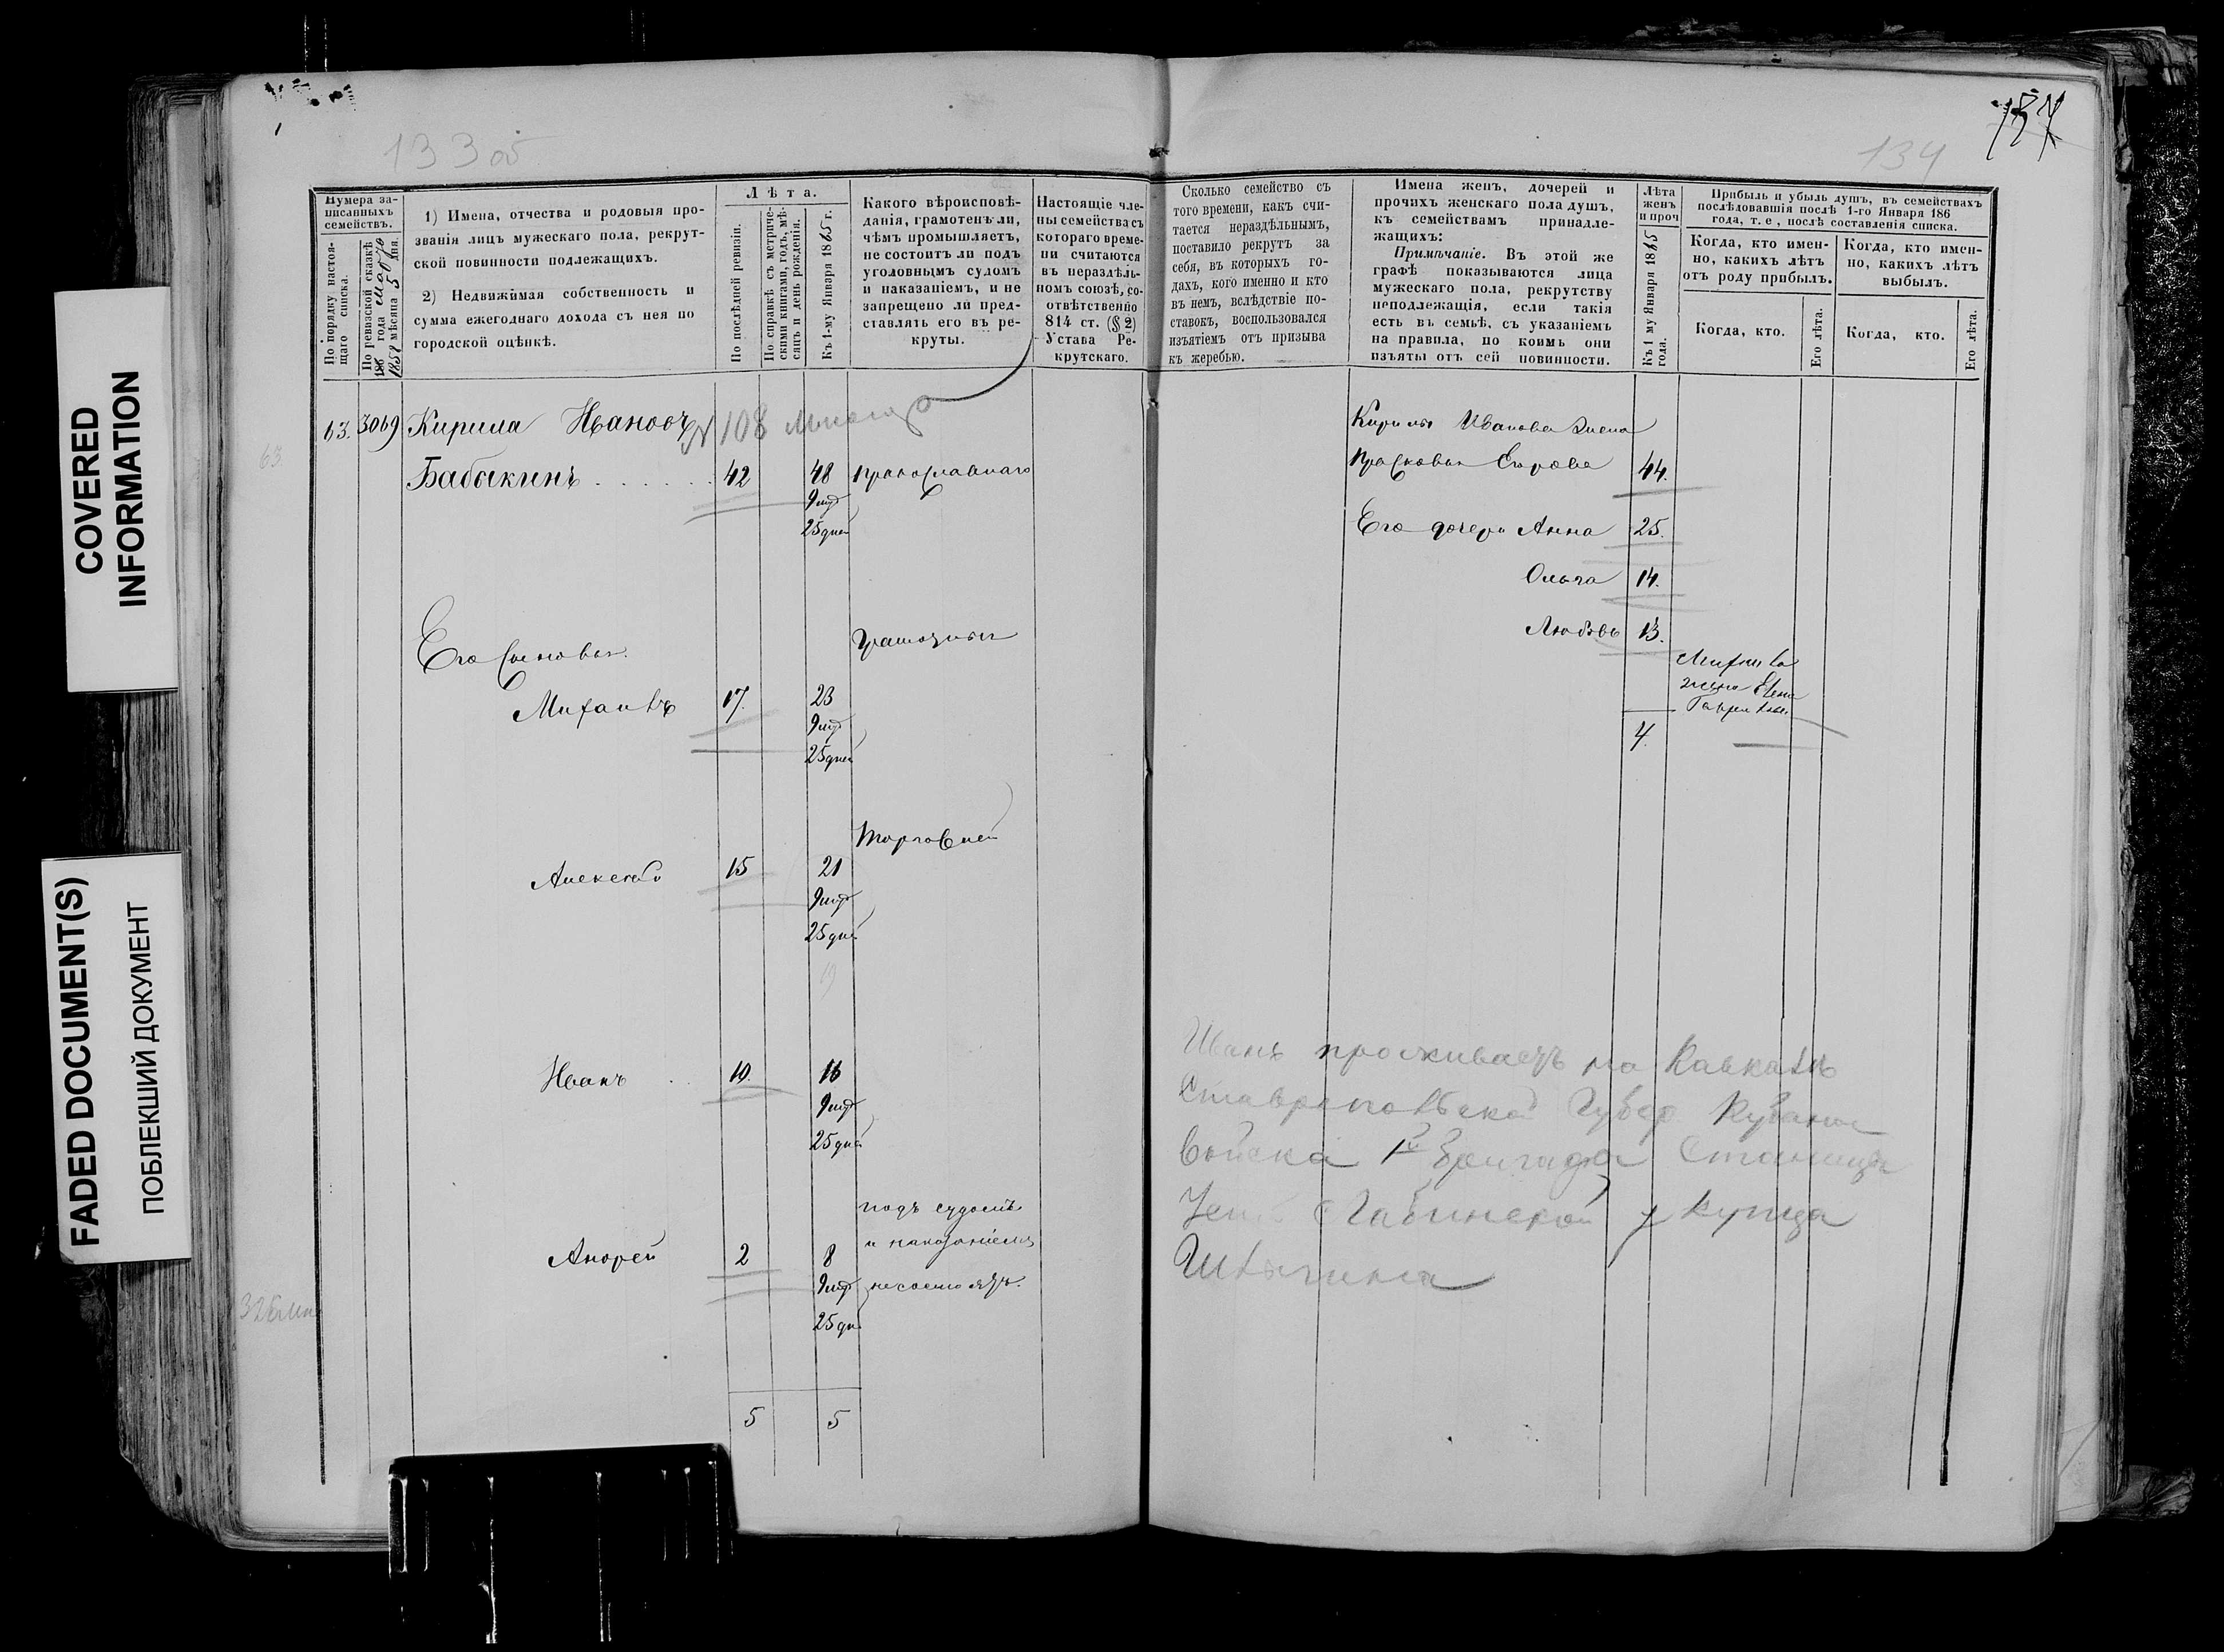 COVERED
INFORMATION
FADED DOCUMENT(S)
ПОБЛЕКШИЙ ДОКУМЕНТ
133 об
Нумера за-
писанныхъ
семействъ.
По порядку настоя-
щаго списка.
По ревизской сказкѣ
186 года
1858 мѣсяца 5 дня.
1) Имена, отчества и родовыя про-
званія лицъ мужескаго пола, рекрут-
ской повинности подлежащихъ.
2) Недвижимая собственность и
сумма ежегоднаго дохода съ нея по
городской оцѣнкѣ.
Лѣта.
По послѣдней ревизіи.
По справкѣ съ метриче-
скими книгами, годъ, мѣ-
сяцъ и день рожденія.
Къ 1-му Января 1865 г.
Какого вѣроисповѣ-
данія, грамотенъ ли,
чѣмъ промышляетъ,
не состоитъ ли подъ
уголовнымъ судомъ
и наказаніемъ, и не
запрещено ли пред-
ставлять его въ ре-
круты.
Настоящіе чле-
ны семейства съ
котораго време-
ни считаются
въ нераздѣль-
номъ союзѣ, со-
отвѣтственно
814 ст. (§ 2)
Устава Ре-
крутскаго.
63.
63. 3069 Кирила Ивановъ 108
Бабыкинъ 42 48 православнаго
9 мѣ
25 дней
Его сыновья. грамотны
Михаилъ 17. 23
9 мѣ
25 дней
торговлей
Алексей 15 21
9 мѣ
25 дней
19
Иванъ 10. 16
9 мѣ
25 дней
подъ судомъ
и наказаніемъ
Андрей 2 8
9 мѣ не состоятъ.
25 дн
5 5
134
Сколько семейство съ
того времени, какъ счи-
тается нераздѣльнымъ,
поставило рекрутъ за
себя, въ которыхъ го-
дахъ, кого именно и кто
въ немъ, вслѣдствіе по-
ставокъ, воспользовался
изъятіемъ отъ призыва
къ жеребью.
Имена женъ, дочерей и
прочихъ женскаго пола душъ,
къ семействамъ принадле-
жащихъ:
Примѣчаніе. Въ этой же
графѣ показываются лица
мужескаго пола, рекрутству
неподлежащія, если такія
есть въ семьѣ, съ указаніемъ
на правила, по коимъ они
изъяты отъ сей повинности.
Лѣта
женъ
и проч
Къ 1 му Января 1865
года.
Прибыль и убыль душъ, въ семействахъ
послѣдовавшія послѣ 1-го Января 186
года, т. е., послѣ составленія списка.
Когда, кто имен-
но, какихъ лѣтъ
отъ роду прибылъ.
Когда, кто имен-
но, какихъ лѣтъ
выбылъ.
Когда, кто.
Его лѣта.
Когда, кто.
Его лѣта.
Кирилы Иванова жена
Прасковья Егорова 44.
Его дочери Анна 25.
Ольга 14.
Любовь 13.
Михаила
жена Елена
Гаврилова
4.
Иванъ проживаетъ на Кавказѣ
Ставропольской Губер Кубанс
войска 1й бригады Станицы
Лабинской у купца